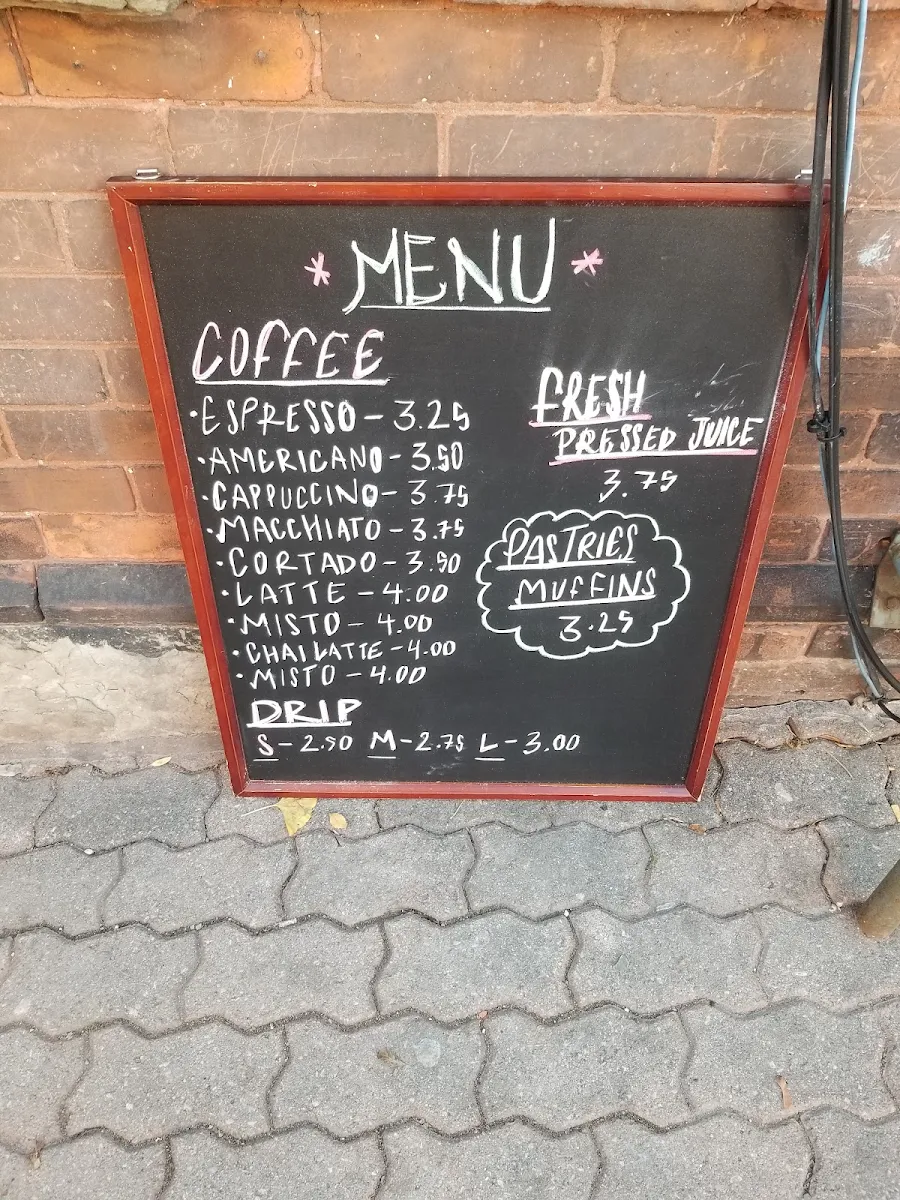 * MENU *
COFFEE
·ESPRESSO - 3.25
·AMERICANO - 3.50
·CAPPUCCINO - 3.75
·MACCHIATO - 3.75
·CORTADO - 3.50
·LATTE - 4.00
·MISTO - 4.00
·CHAI LATTE - 4.00
·MISTO - 4.00
DRIP
S - 2.50 M - 2.75 L - 3.00
FRESH
PRESSED JUICE
3.75
PASTRIES
MUFFINS
3.25